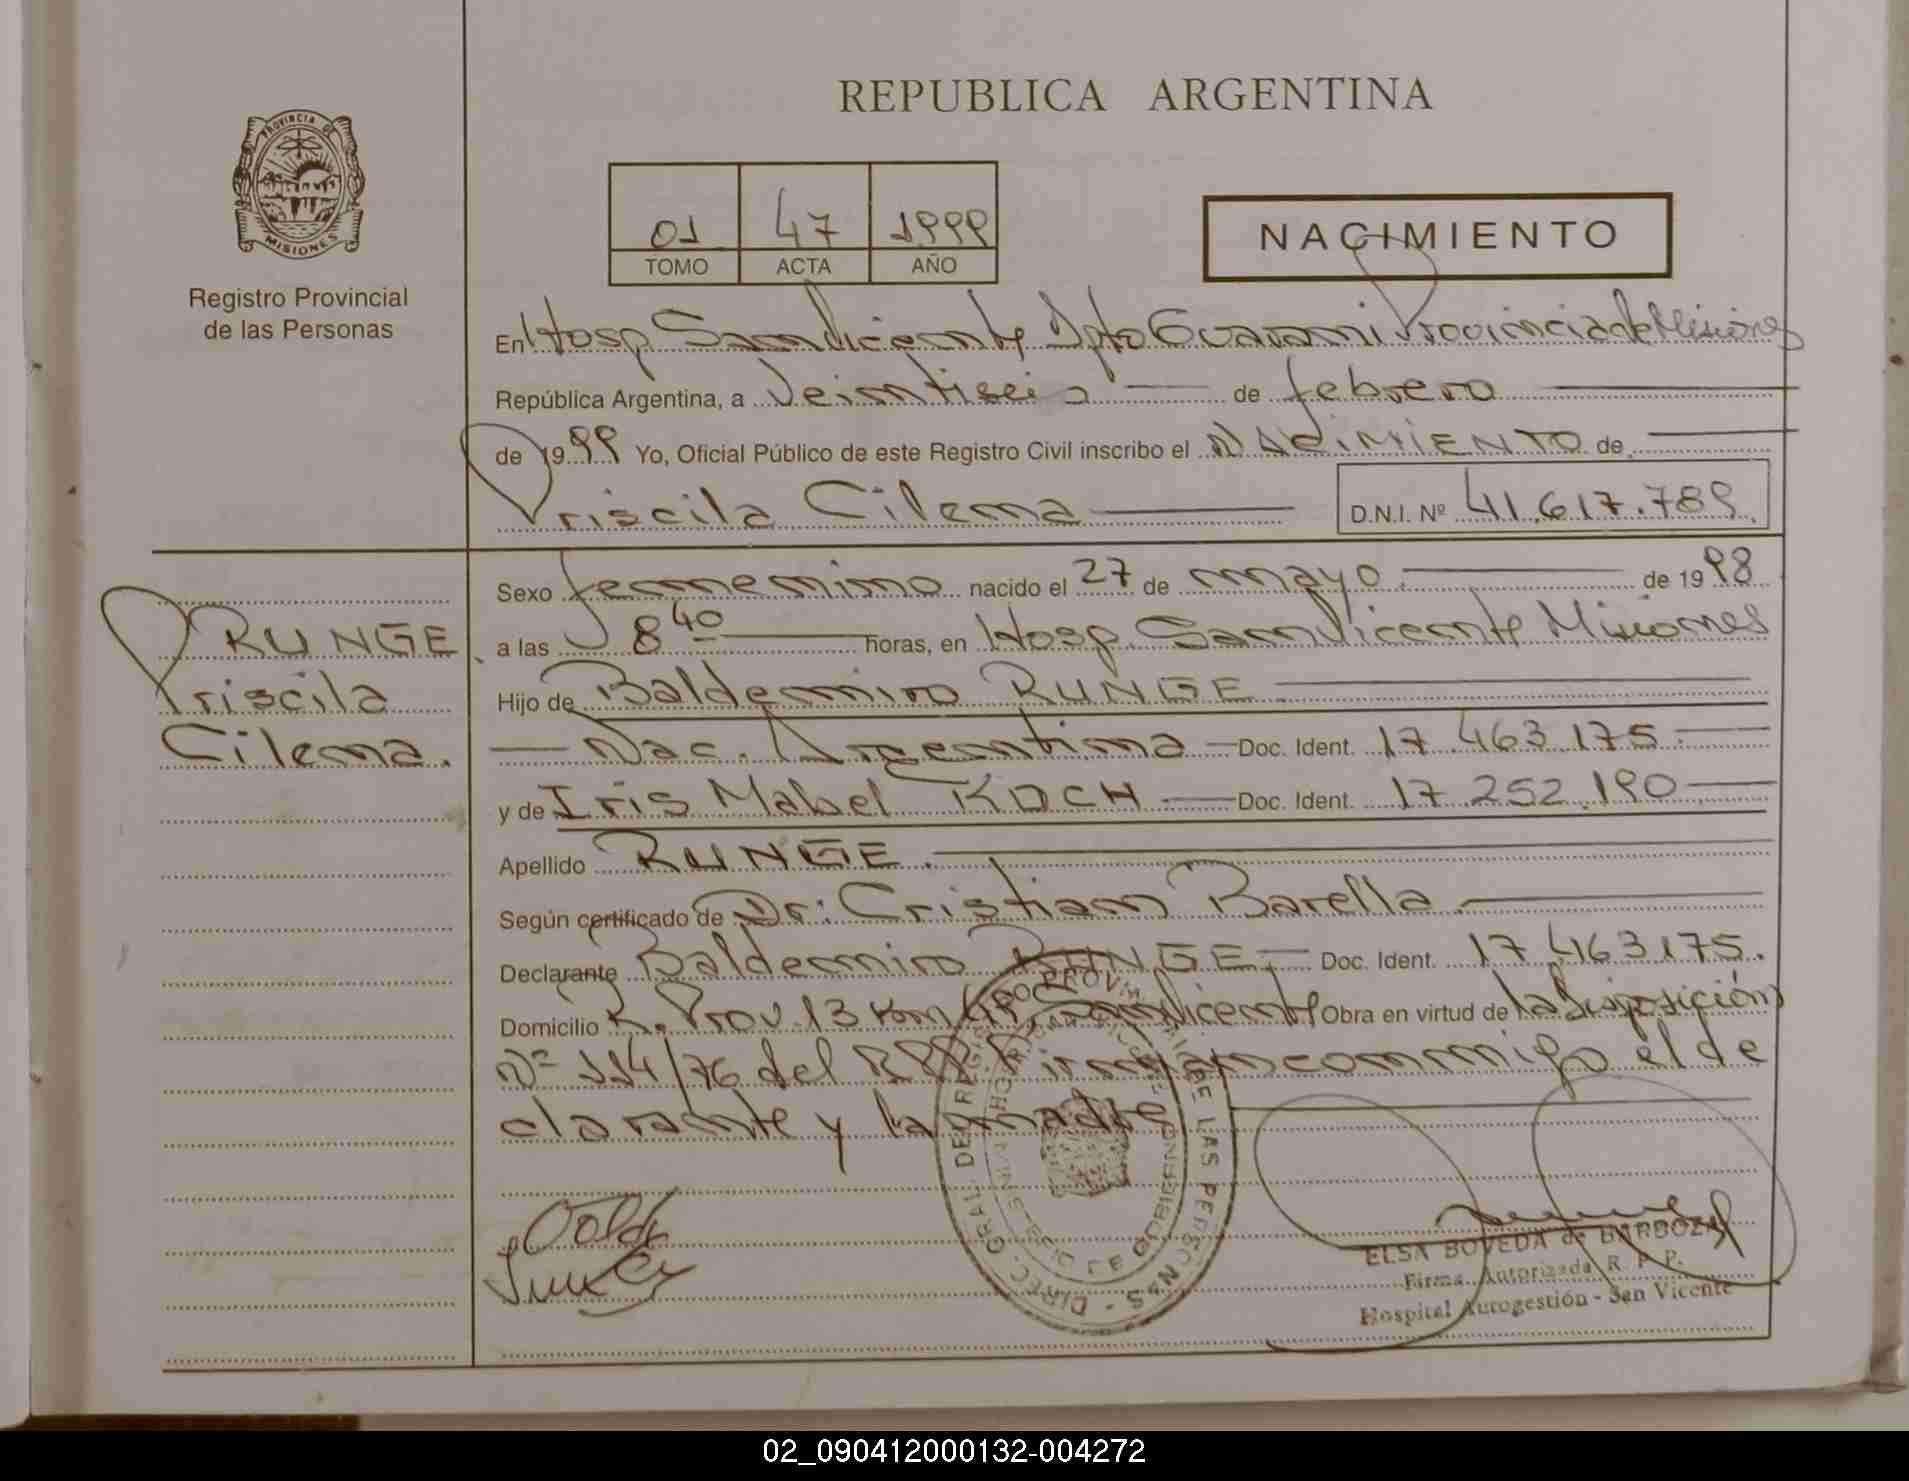 REPUBLICA ARGENTINA
PROVINCIA DE
MISIONES
Registro Provincial
de las Personas
01 47 1999
TOMO ACTA AÑO
NACIMIENTO
En Hosp San Vicente Dpto Guarani Provincia de Misiones
República Argentina, a Veintiseis de febrero
de 1999 Yo, Oficial Público de este Registro Civil inscribo el NACIMIENTO de
Priscila Cilena D.N.I. Nº 41.617.789
Sexo femenino nacido el 27 de mayo. de 1998
a las 8 40 horas, en Hosp. San Vicente Misiones
Hijo de Baldemiro RUNGE
Nac. Argentina Doc. Ident. 17.463.175
y de Iris Mabel KOCH Doc. Ident. 17.252.190
Apellido RUNGE.
Según certificado de Dr: Cristian Barella.
Declarante Baldemiro RUNGE Doc. Ident. 17.463.175.
Domicilio R. Prov. 13 Km San Vicente Obra en virtud de la Disposición
Nº 114/76 del RPP. Firman conmigo el de
clarante y la madre
RUNGE
Priscila
Cilena.
DIREC. GRAL. DE REGIST DE LAS PERSONAS
GOBIERNO
ELSA BOVEDA de BARBOZA
Firma Autorizada R. P. P.
Hospital Autogestión - San Vicente
02_090412000132-004272